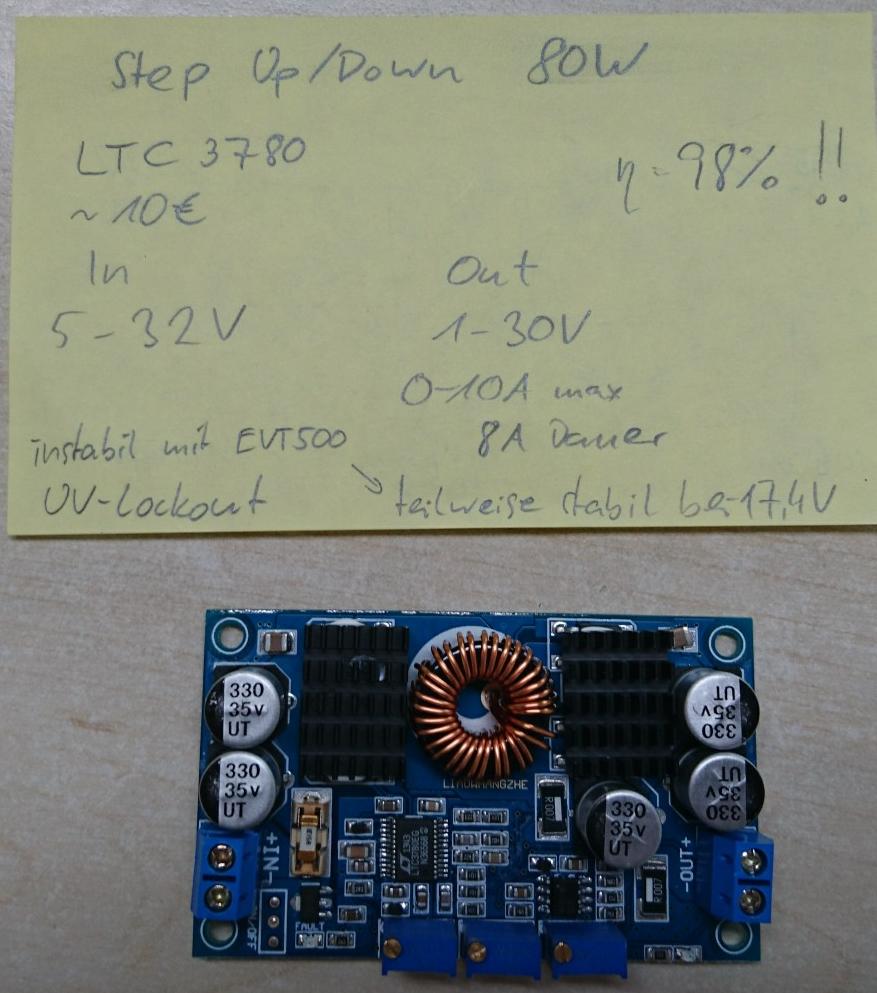 Step Up/Down 80W
LTC 3780
η = 98% !!
~ 10€
In Out
5-32V 1-30V
0-10A max
instabil mit EVT500 8A Dauer
UV-Lockout teilweise stabil bei 17,4V
330
35v
UT
330
35v
UT
330
35v
UT
330
35v
UT
330
35v
UT
LIAOWMANGZHE
R007
R007
1343
LTC3780EG
-IN+
-OUT+
FAULT